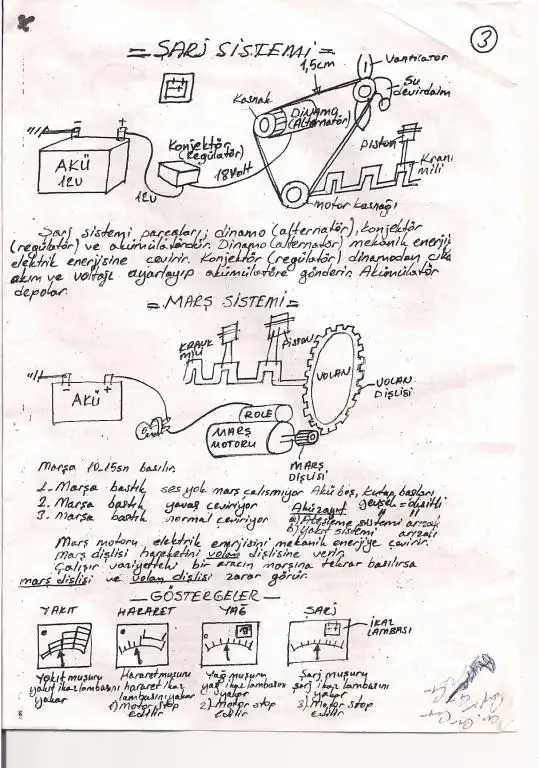 3
= ŞARJ SİSTEMİ =
1,5cm
Vantilatör
Su
devirdaim
Kasnak
DİNAMO
(Alternatör)
Piston
Krank
mili
Konjektör
(Regülatör)
AKÜ
12V
12V
18Volt
motor kasnağı
Şarj sistemi parçaları; dinamo (alternatör), konjektör
(regülatör) ve akümülatördür. Dinamo (alternatör) mekanik enerjiyi
elektrik enerjisine çevirir. Konjektör (regülatör) dinamodan çıka
akım ve voltajı ayarlayıp akümülatöre gönderir. Akümülatör
depolar.
= MARŞ SİSTEMİ =
KRANK
MİLİ
PİSTON
VOLAN
VOLAN
DİŞLİSİ
AKÜ
ROLE
MARŞ
MOTORU
MARŞ
DİŞLİSİ
Marşa 10-15sn basılır.
1. Marşa bastık ses yok marş çalışmıyor Akü boş, kutup başları
gevşek = oksitli
2. Marşa bastık yavaş çeviriyor Akü zayıf " "
3. Marşa bastık normal çeviriyor a) Ateşleme sistemi arızalı
b) Yakıt sistemi arızalı
Marş motoru, elektrik enerjisini mekanik enerjiye çevirir.
marş dişlisi hareketini volan dişlisine verir.
Çalışır vaziyetteki bir aracın marşına tekrar basılırsa
marş dişlisi ve volan dişlisi zarar görür.
— GÖSTERGELER —
YAKIT HARARET YAĞ ŞARJ
İKAZ
LAMBASI
Yakıt müşürü
yakıt ikaz lambasını
yakar
Hararet müşürü
hararet ikaz
lambasını yakar
1) Motor stop
edilir
Yağ müşürü
yağ ikaz lambasını
yakar
2) Motor stop
edilir
Şarj müşürü
şarj ikaz lambasını
yakar
3) Motor stop
edilir